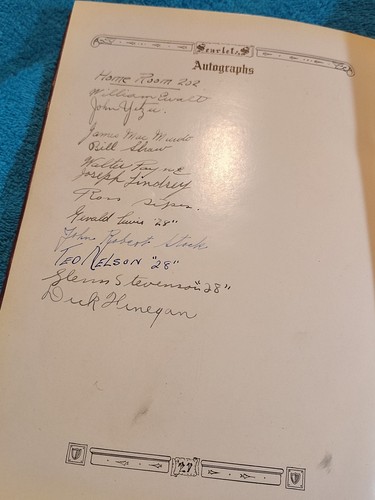 Scarlet S
Autographs
Home Room 202
William Ewalt
John
James Mac
Bill Shaw
Walter Payne
Joseph Lindrey
Ross
Gerald Lewis "28"
John Robert Stock
Ted Nelson "28"
Glenn Stevenson "28"
Dick Finegan
27